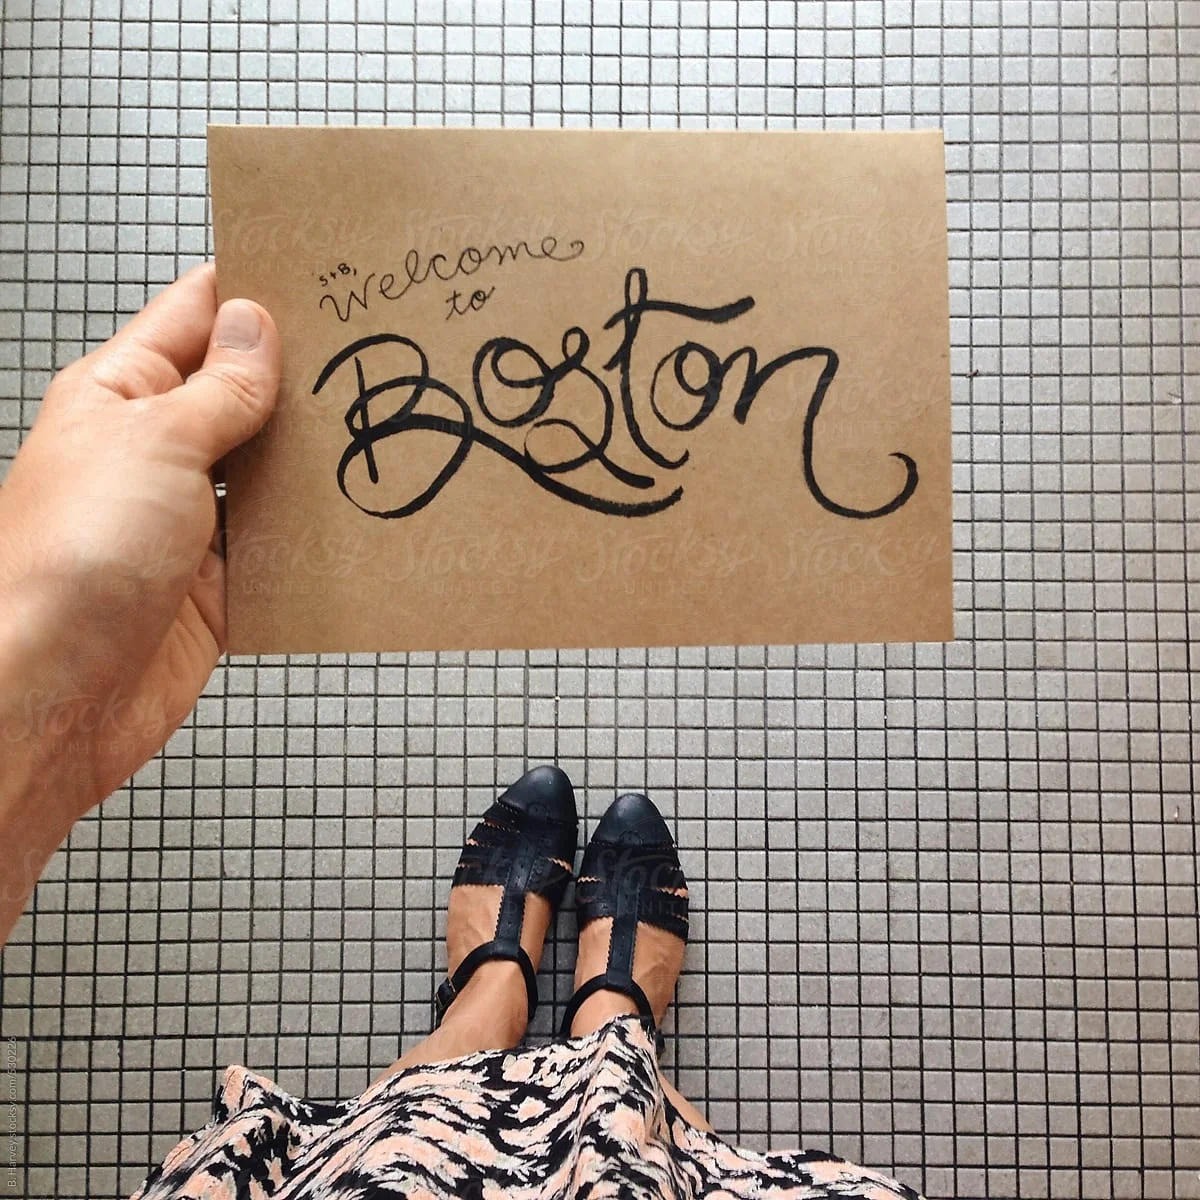 S+B,
Welcome
to
Boston
Stocksy
UNITED
B. Harvey stocksy.com/530226